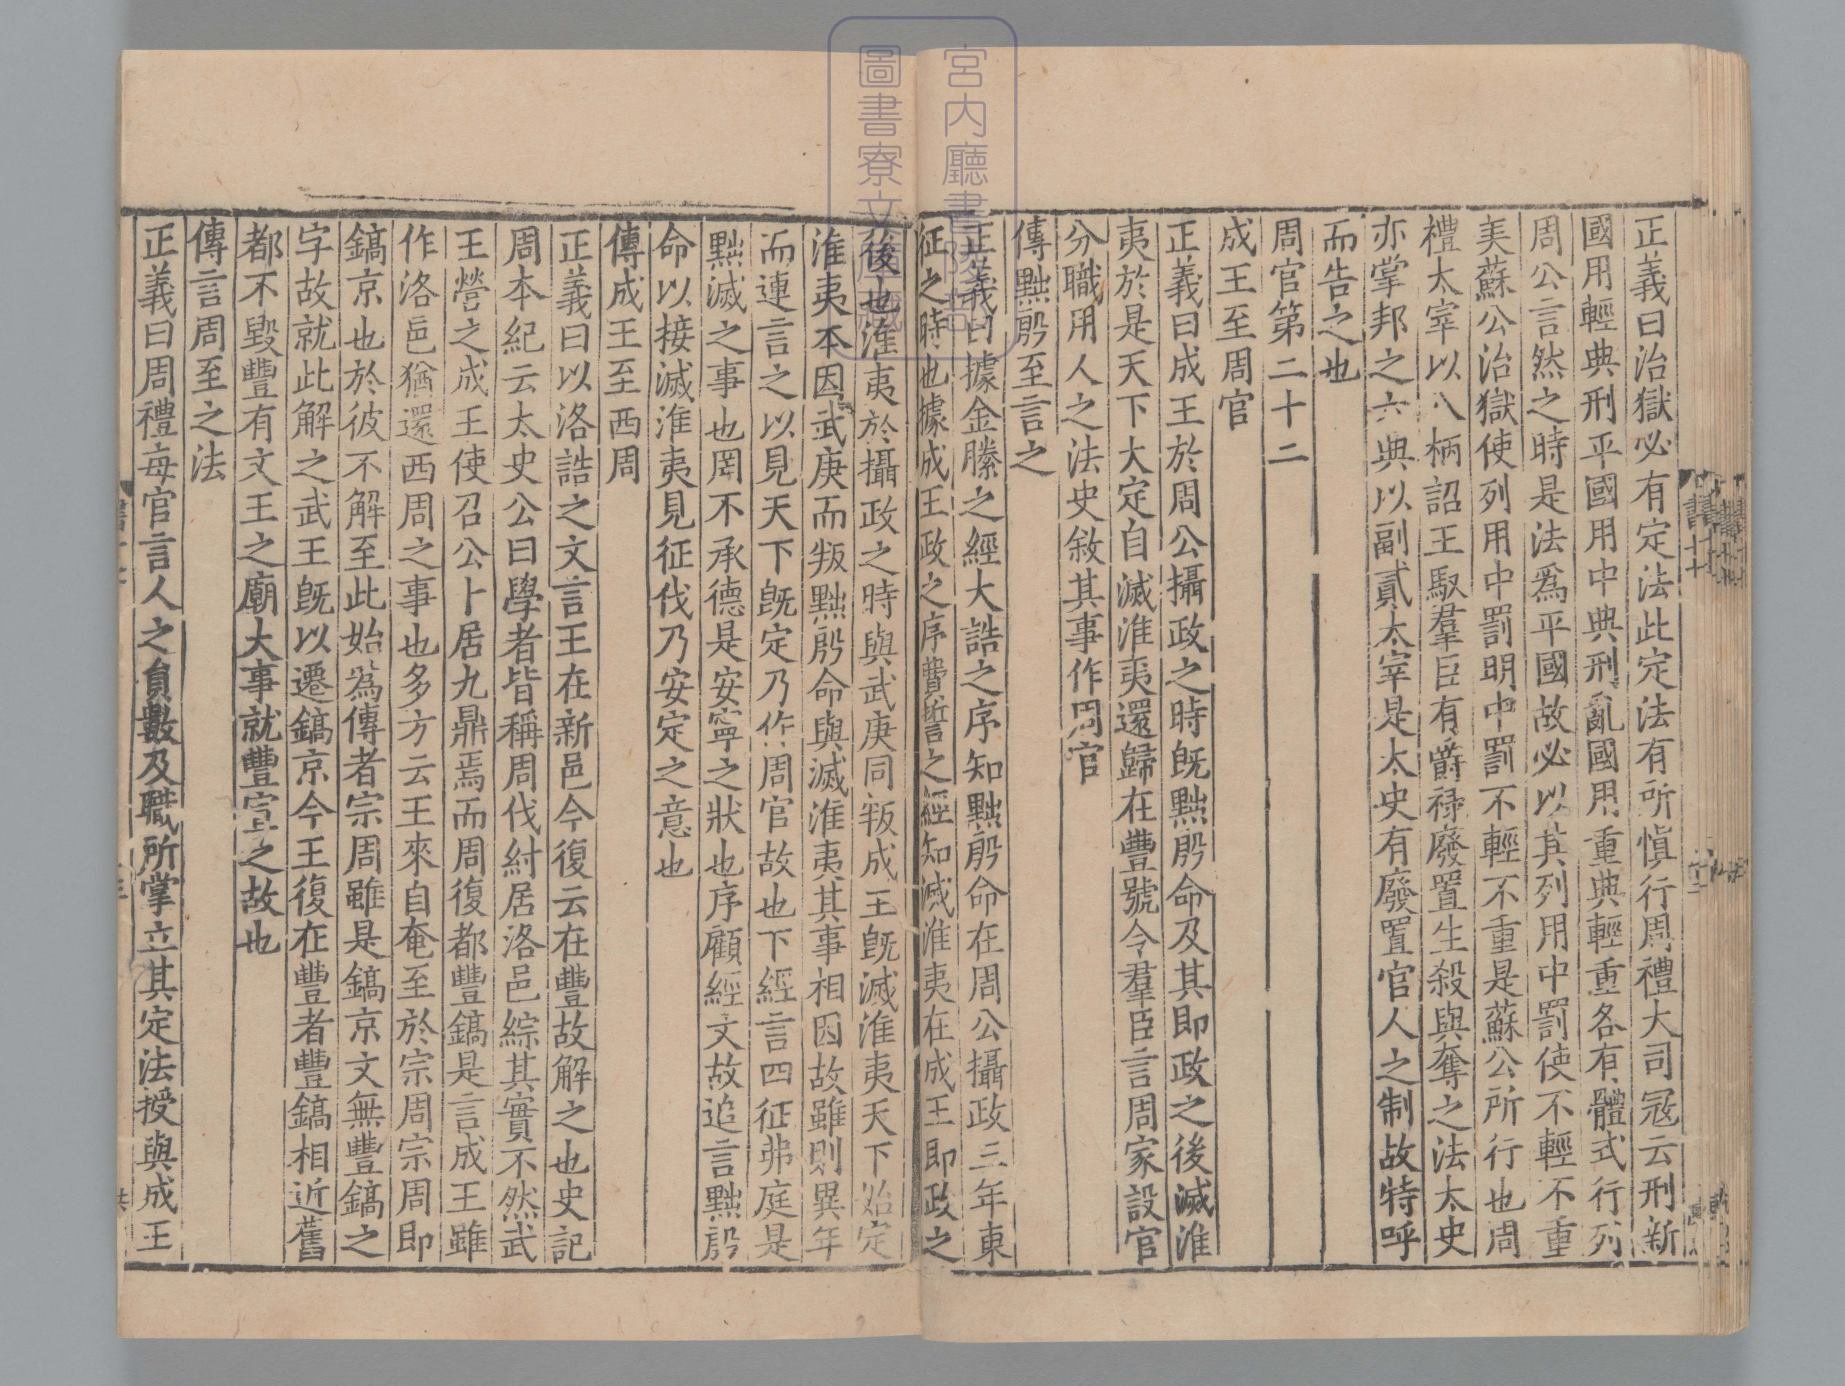 正義曰治獄必有定法此定法有所慎行周禮大司冦云刑新
國用輕典刑平國用中典刑亂國用重典輕重各有體式行列
周公言然之時是法爲平國故必以其列用中罰使不輕不重
美蘇公治獄使列用中罰明中罰不輕不重是蘇公所行也周
禮太宰以八柄詔王馭羣臣有爵祿廢置生殺與奪之法太史
亦掌邦之六典以副貳太宰是太史有廢置官人之制故特呼
而告之也
周官第二十二
成王至周官
正義曰成王於周公攝政之時旣黜殷命及其即政之後滅淮
夷於是天下大定自滅淮夷還歸在豐號令羣臣言周家設官
分職用人之法史敘其事作周官
傳黜殷至言之
正義曰據金縢之經大誥之序知黜殷命在周公攝政三年東
征之時也據成王政之序費誓之經知滅淮夷在成王即政之
後也淮夷於攝政之時與武庚同叛成王旣滅淮夷天下始定
淮夷本因武庚而叛黜殷命與滅淮夷其事相因故雖則異年
而連言之以見天下旣定乃作周官故也下經言四征弗庭是
黜滅之事也罔不承德是安寧之狀也序顧經文故追言黜殷
命以接滅淮夷見征伐乃安定之意也
傳成王至西周
正義曰以洛誥之文言王在新邑今復云在豐故解之也史記
周本紀云太史公曰學者皆稱周伐紂居洛邑綜其實不然武
王營之成王使召公卜居九鼎焉而周復都豐鎬是言成王雖
作洛邑猶還西周之事也多方云王來自奄至於宗周宗周即
鎬京也於彼不解至此始爲傳者宗周雖是鎬京文無豐鎬之
字故就此解之武王旣以遷鎬京今王復在豐者豐鎬相近舊
都不毀豐有文王之廟大事就豐宣之故也
傳言周至之法
正義曰周禮每官言人之員數及職所掌立其定法授與成王
宮内廳書陵部
圖書寮文庫